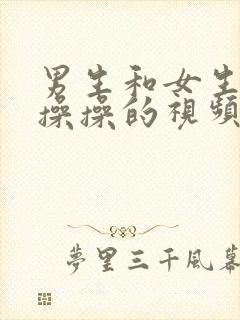 男生和女生
操操的視頻
夢里三千風幕